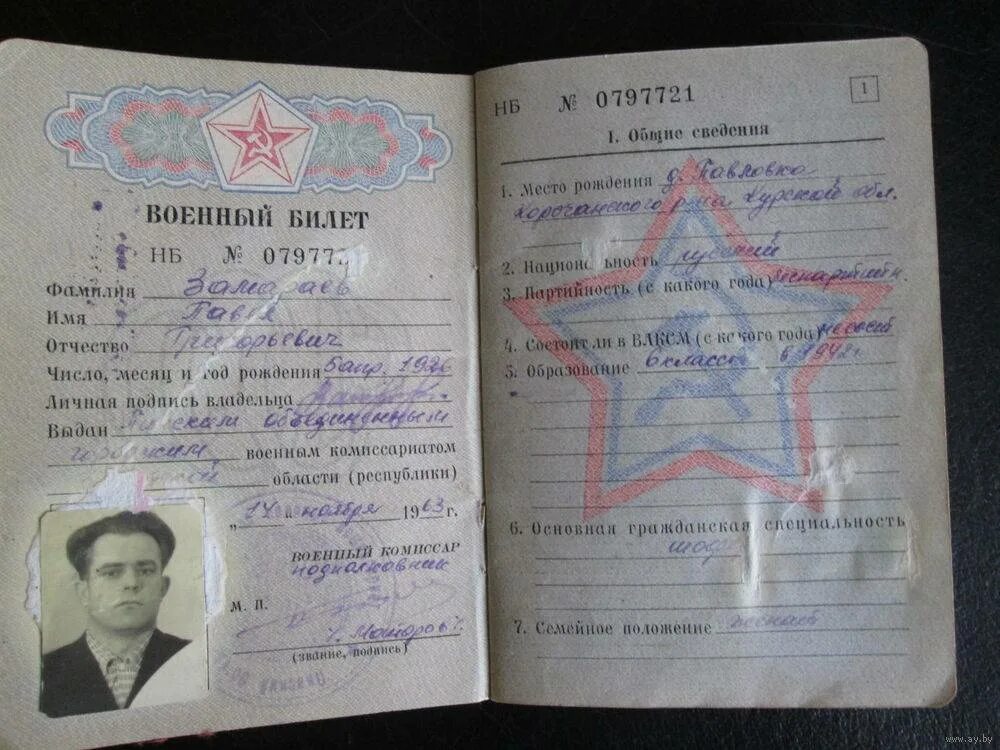 ВОЕННЫЙ БИЛЕТ
НБ № 079772
Фамилия Замараев
Имя Павел
Отчество Григорьевич
Число, месяц и год рождения 5 апр. 1926
Личная подпись владельца
Выдан объединенным
городским военным комиссариатом
области (республики)
„14" ноября 1963 г.
ВОЕННЫЙ КОМИССАР
подполковник
М. П.
(звание, подпись)
НБ № 0797721
1
I. Общие сведения
1. Место рождения д. Павловка
Корочанского р-на Курской обл.
2. Национальность русский
3. Партийность (с какого года) беспартийн
4. Состоит ли в ВЛКСМ (с какого года) не сост
5. Образование 6 классов в 1942 г
6. Основная гражданская специальность
7. Семейное положение женат
www.ay.by